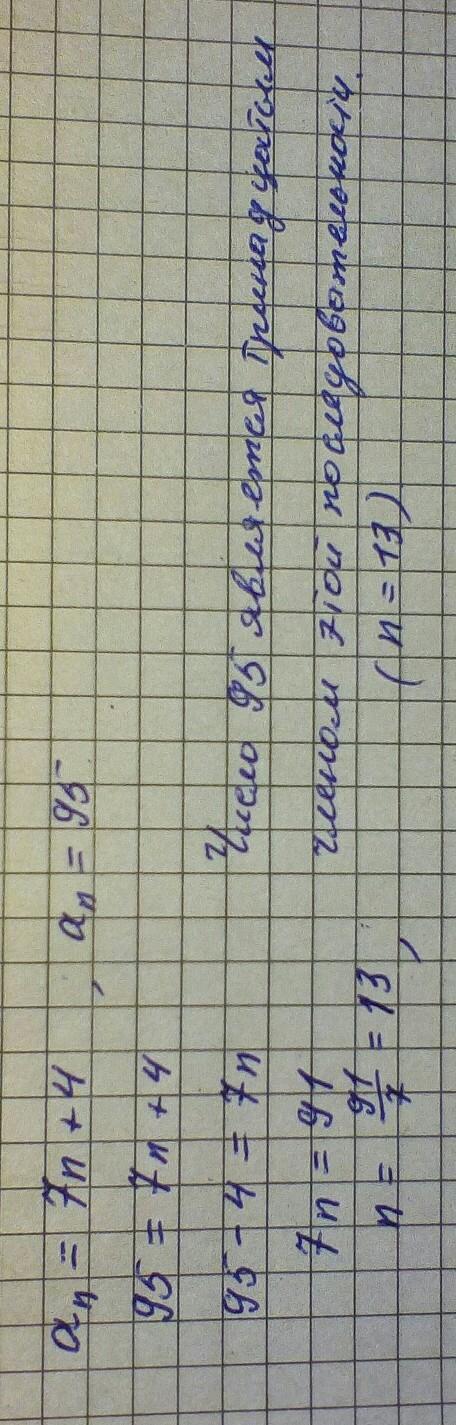 aₙ = 7n + 4 , aₙ = 95
95 = 7n + 4
95 - 4 = 7n
7n = 91
n = 91/7 = 13 ,
Число 95 является тринадцатым
членом этой последовательности.
(n = 13)